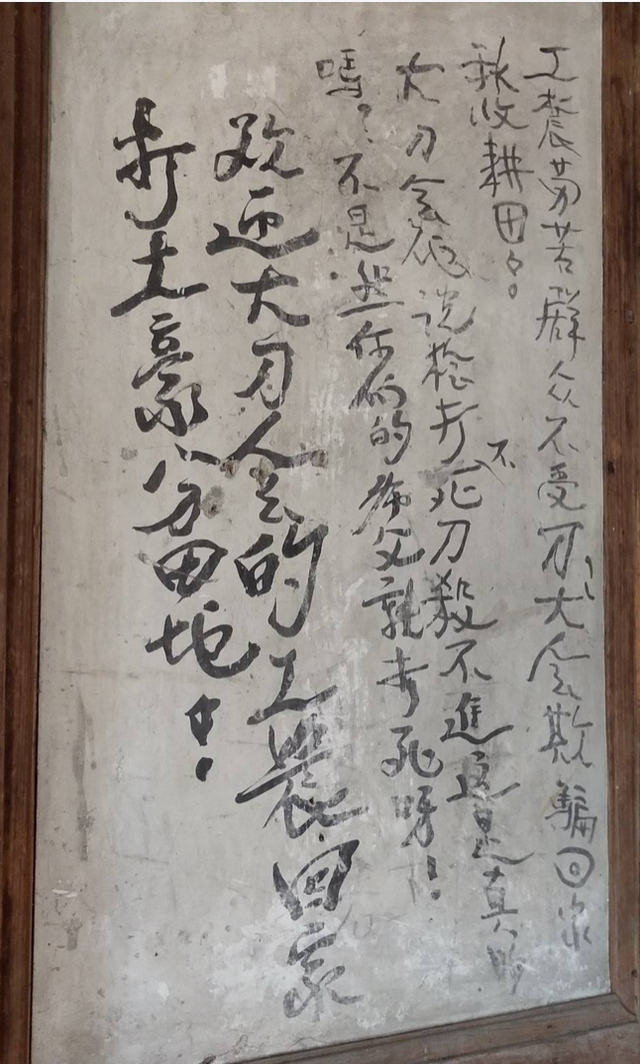 工農劳苦群众不受刀大会欺騙回家
秋收耕田々。
大刀会说枪打不死刀殺不進這是真的
嗎？不是，你们的師父就打死呀！
欢迎大刀会的工農回家
打土豪分田地！